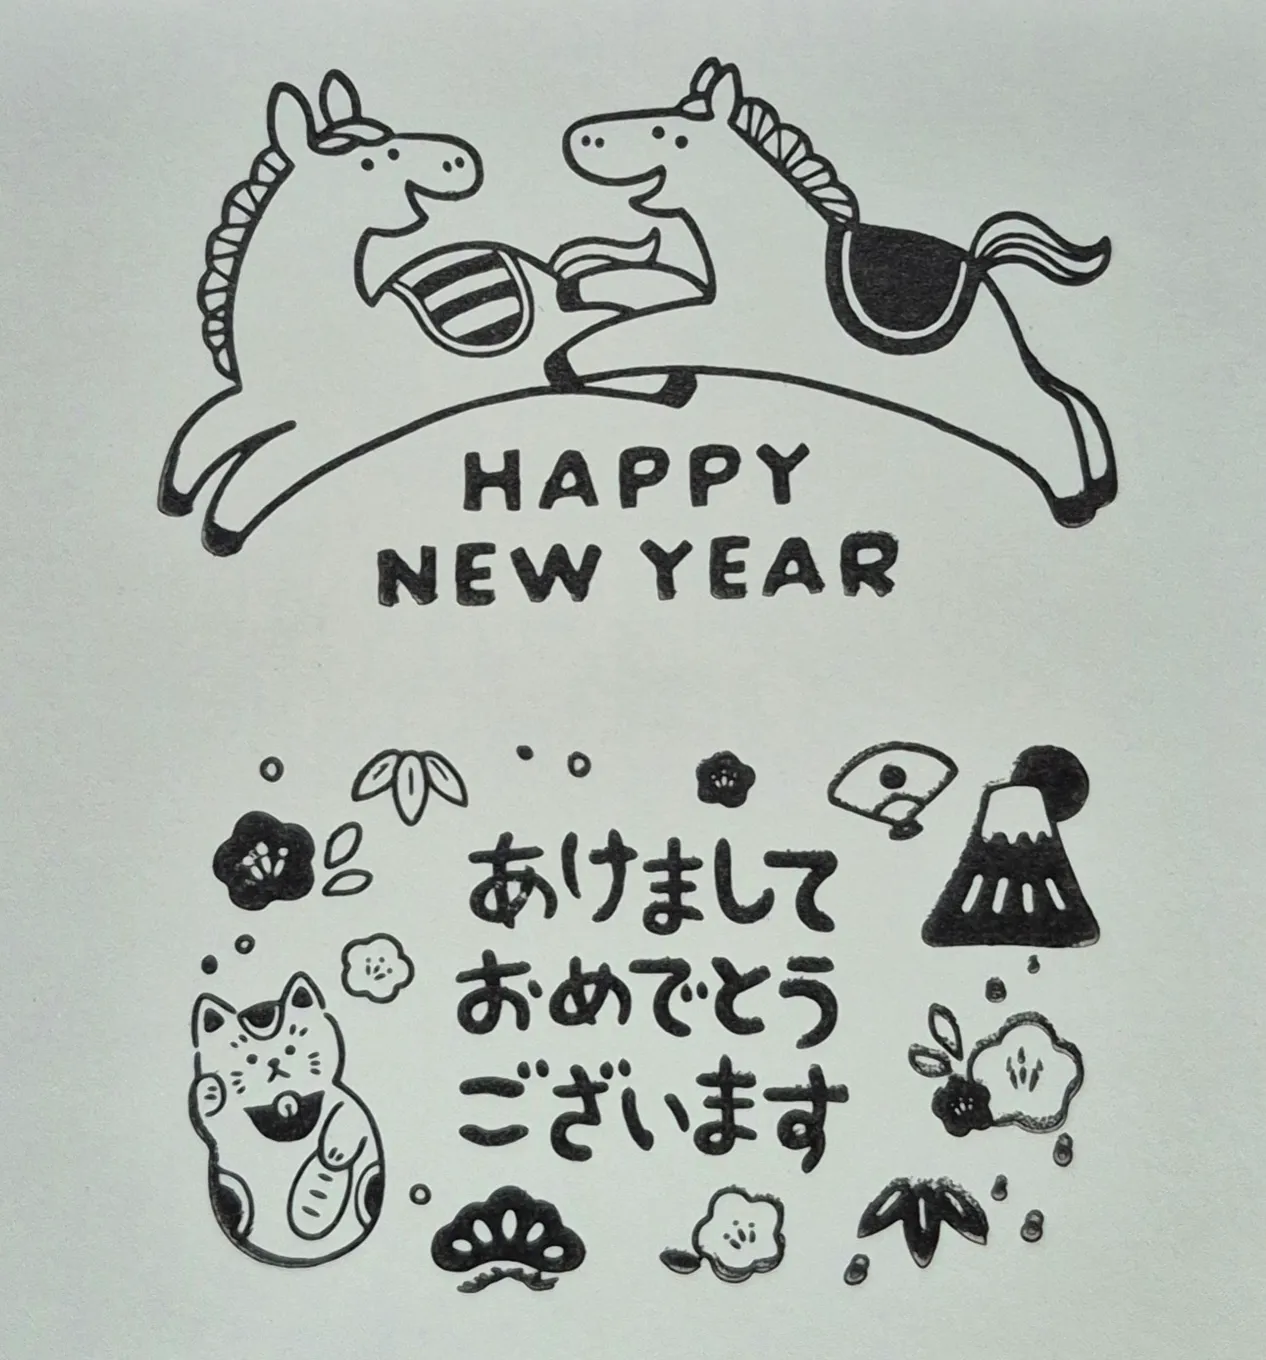 HAPPY
NEW YEAR
あけまして
おめでとう
ございます